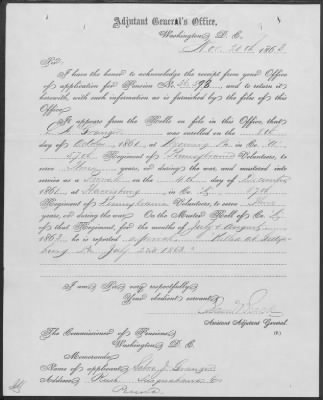 Adjutant General's Office,
Washington, D. C.
Nov. 20th, 1863
Sir:
I have the honor to acknowledge the receipt from your Office
of application for Pension No. 36.398, and to return it
herewith, with such information as is furnished by the files of this
Office.
It appears from the Rolls on file in this Office, that
Granger was enrolled on the 8th
day of October, 1861, at in Co. G
57th Regiment of Pennsylvania Volunteers, to
serve three years, or during the war, and mustered into
service as a on the day of December
1861, at Harrisburg, in Co. G, 57th
Regiment of Pennsylvania Volunteers, to serve three
years, or during the war. On the Muster Roll of Co. G
of that Regiment, for the months of July & August
1863, he is reported Killed at Gettys-
burg Pa July 2nd 1863
I am, Sir, very respectfully,
Your obedient servant,
Assistant Adjutant General.
The Commissioner of Pensions,
Washington, D. C.
Memoranda:
Name of applicant, J. Granger
Address, Rush Susquehanna Co
Penna